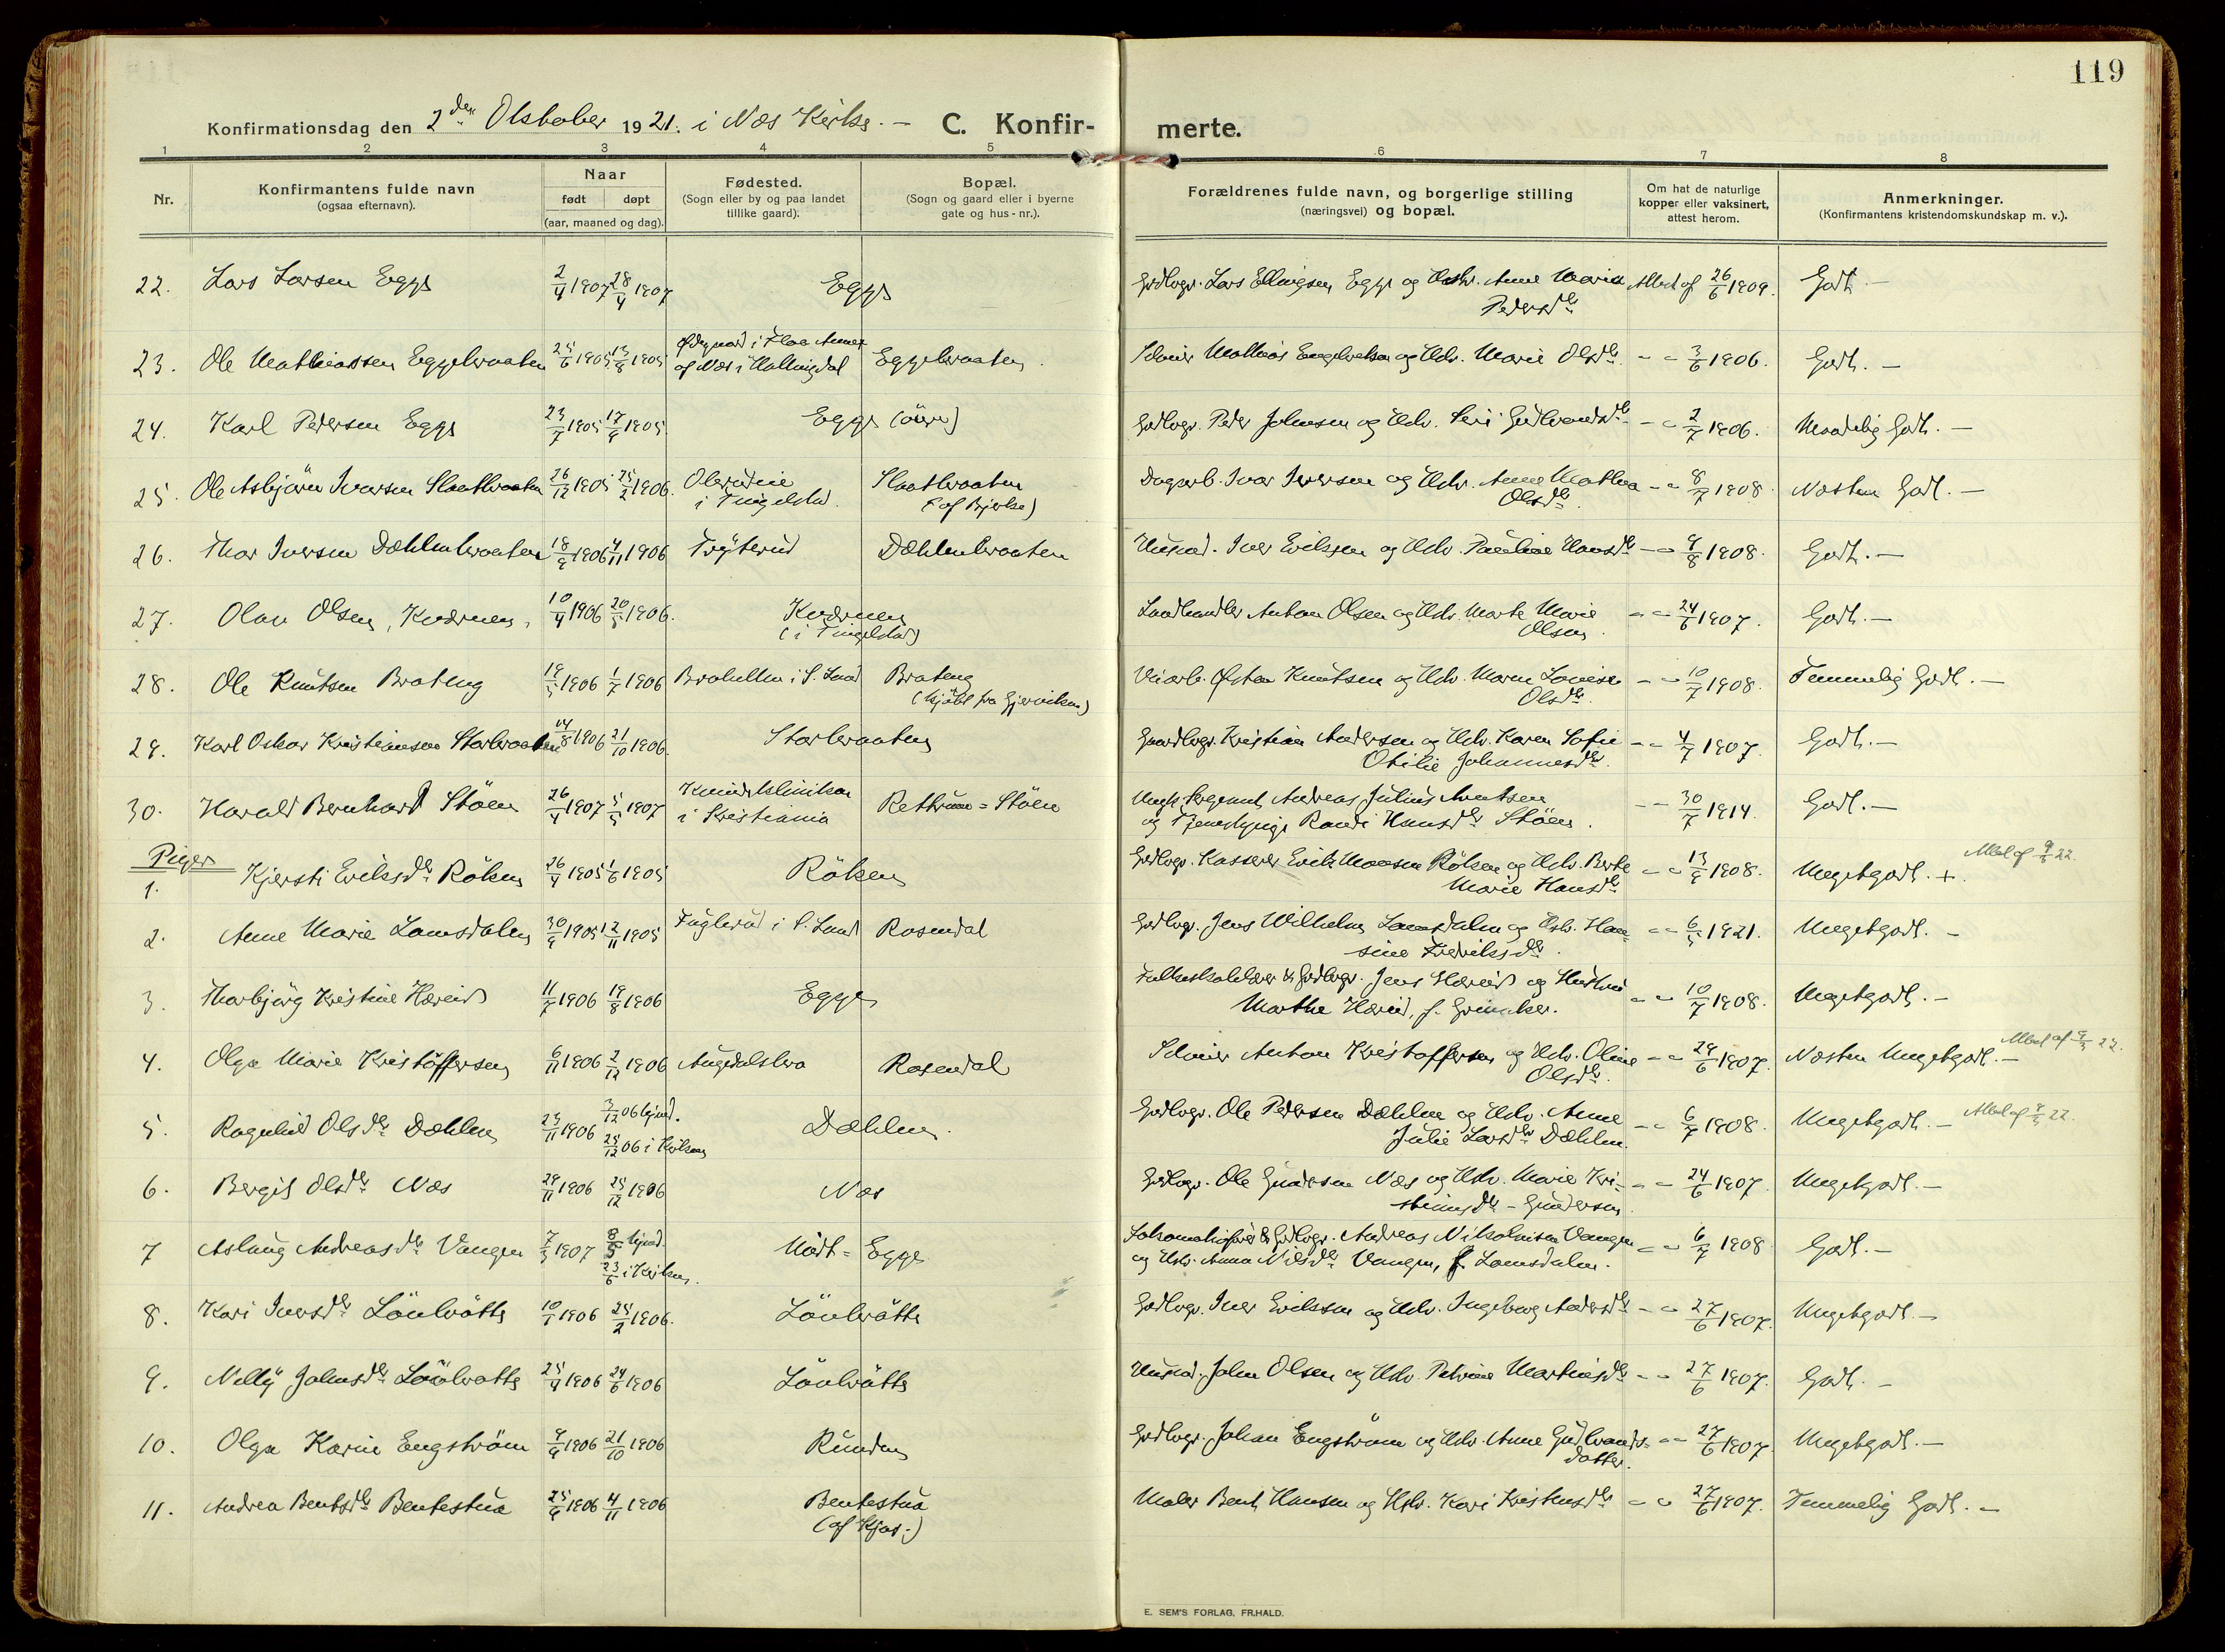 119
Konfirmationsdag den 2den Oktober 1921. i Næs Kirke. — C. Konfir- merte.
1 2 3 4 5 6 7 8
Nr.
Konfirmantens fulde navn
(ogsaa efternavn).
Naar
født døpt
(aar, maaned og dag).
Fødested.
(Sogn eller by og paa landet
tillike gaard).
Bopæl.
(Sogn og gaard eller i byerne
gate og hus-nr.).
Forældrenes fulde navn, og borgerlige stilling
(næringsvei) og bopæl.
Om hat de naturlige
kopper eller vaksinert,
attest herom.
Anmerkninger.
(Konfirmantens kristendomskundskap m. v.).
22. Lars Larsen Egge 2/4 1907 28/4 1907 Egge Lars Ellingsen Egge og Anne Maria Pedersdtr 26/6 1909. Godt —
23. Ole Mathiassen Eggebraaten 25/6 1905 13/8 1905 i Flaa Annex
af Næs i Hallingdal Eggebraaten. Mathias Engebretsen og Hstr. Marie Olsdtr. - - 3/6 1906. Godt. —
24. Karl Pedersen Egge 23/7 1905 17/9 1905 Egge (øvre) Gdbrgr. Peder Johnsen og Hstr. Siri Gudbrandsdtr - - 2/7 1906. Maadelig Godt. —
25. Ole Asbjörn Iversen Slaatbraaten 26/12 1905 25/2 1906. i Tingelstad. Slaatbraaten
(af Bjerke) Dagarb. Ivar Iversen og Hstr. Anne Mathea
Olsdtr. - - 8/7 1908. Næsten Godt. —
26. Thor Iversen Dæhlenbraaten 18/9 1906 4/11 1906 Trÿterud Dæhlenbraaten Husmd. Iver Eriksen og Hstr. Pauline Hansdtr - - 9/8 1908. Godt. —
27. Olav Olsen, Kværnen, 10/4 1906 20/5 1906. Kværnen
(i Tingelstad) Landhandler Anton Olsen og Hstr. Marte Marie
Olsen. - - 24/6 1907. Godt. —
28. Ole Knutsen Brateng 19/5 1906 1/7 1906 i S. Land Brateng Veiarb. Østen Knutsen og Hstr. Maren Lovise
Olsdtr. - - 10/7 1908. Temmelig Godt. —
29. Karl Oskar Kristiansen Storbraaten 14/8 1906 21/10 1906. Storbraaten Gaardbrgr. Kristian Andersen og Hstr. Karen Sofie
Otilie Johannesdtr. - - 4/7 1907. Godt. —
30. Harald Bernhard Stöen 26/4 1907 5/5 1907 Kvindeklinikken
i Kristiania Stöen Ungk. Sergeant Andreas Julius Knutsen
og Tjenestpige Randi Hansdtr Stöen. - - 30/7 1914. Godt. —
Piger
1. Kjersti Eriksdtr Röken 26/4 1905 1/6 1905 Röken Gdbrgr. Kasserer Erik Monsen Röken og Hstr. Berte
Marie Hansdtr - - 13/9 1908. Megetgodt. +
2. Anne Marie Lomsdalen 30/9 1905 12/11 1905 Fuglerud i S. Land Rosendal Gdbrgr. Jens Wilhelm Lomsdalen og Hstr. Han-
sine Fredriksdtr. - - 6/5 1921. Megetgodt. —
3. Thorbjörg Kristine Hæreid 11/7 1906 19/8 1906 Egge Gdbrgr. Jens Hæreid og Hustru
Marthe Hæreid, f. Grinaker. - - 10/7 1908. Megetgodt. —
4. Olga Marie Kristoffersen 6/11 1906 2/12 1906 Rosendal Anton Kristoffersen og Hstr. Oline
Olsdtr. - - 29/6 1907. Næsten Megetgodt. —
5. Ragnhild Olsdtr Dæhlen 23/11 1906 3/12 06 hjmd.
25/12 06 i Kirken Dæhlen. Gdbrgr. Ole Pedersen Dæhlen og Hstr. Anne
Julie Larsdtr Dæhlen. - - 6/7 1908. Megetgodt. —
6. Bergit Olsdtr Næs 29/11 1906 25/12 1906 Næs Gdbrgr. Ole Gundersen Næs og Hstr. Marie Kri-
stiansdtr - Gundersen. - - 24/6 1907. Megetgodt. —
7 Aslaug Andreasdtr Vangen 7/3 1907 hjmd.
23/6 i Kirken. Midt = Egge Lokomotivfører & Gdbrgr. Andreas Nikolaisen Vangen
og Hstr. Anna Nilsdtr Vangen, f. Lomsdalen. - - 6/7 1908 Godt. —
8. Kari Iversdtr Lönbråtte 10/1 1906 25/2 1906. Lönbråtte Gdbrgr. Iver Eriksen og Hstr. Ingeborg Andersdtr - - 27/6 1907. Megetgodt. —
9. Nelly Johnsdtr Lönbråtte 25/4 1906 24/6 1906 Lönbråtte Husmd. John Olsen og Hstr. Petrine Martinsdtr - - 27/6 1907. Godt. —
10. Olga Karine Engström 9/9 1906 21/10 1906 Runden Gdbrgr. Johan Engström og Hstr. Anne Gudbrands-
datter. - - 27/6 1907. Megetgodt. —
11. Andrea Bentsdtr Bentestua 25/9 1906 4/11 1906 Bentestua
(af Kjos.) Maler Bent Hansen og Hstr. Kari Kristensdtr - - 27/6 1907. Temmelig Godt. —
E. SEM'S FORLAG, FR.HALD.